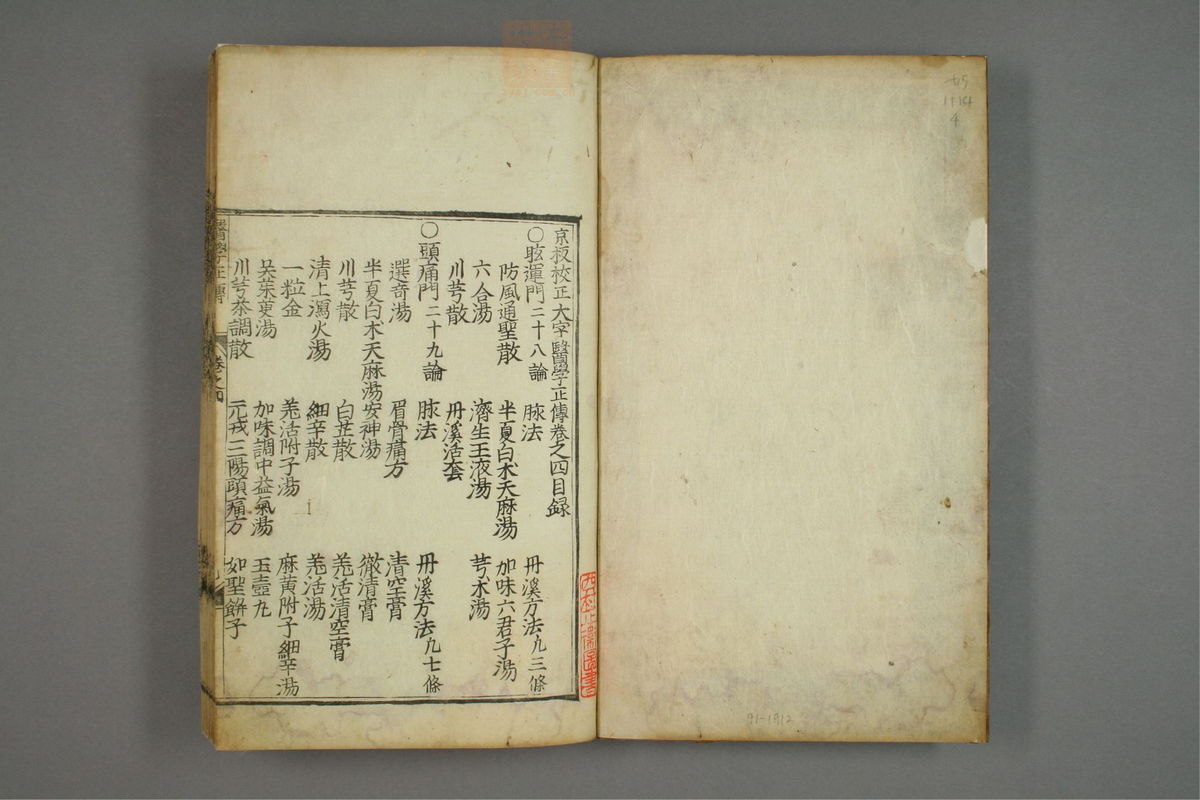 京板校正大字醫學正傳卷之四目録
○眩運門二十八論 脉法 丹溪方法凢三條
防風通聖散 半夏白朮天麻湯 加味六君子湯
六合湯 濟生玉液湯 芎朮湯
川芎散 丹溪活套
○頭痛門二十九論 脉法 丹溪方法凢七條
選奇湯 眉骨痛方 清空膏
半夏白朮天麻湯 安神湯 徹清膏
川芎散 白芷散 羌活清空膏
清上瀉火湯 細辛散 羌活湯
一粒金 羌活附子湯 麻黄附子細辛湯
吳茱萸湯 加味調中益氣湯 玉壺丸
川芎茶調散 元戎三陽頭痛方 如聖餅子
醫學正傳 卷之四
91-1912